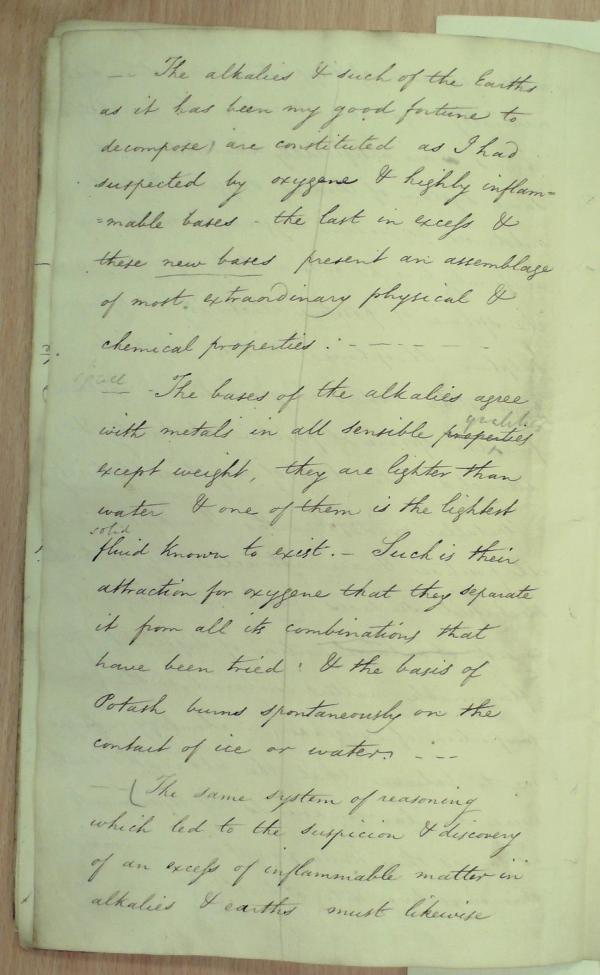 — The alkalies & such of the Earths
as it has been my good fortune to
decompose) are constituted as I had
suspected by oxygene & highly inflam=
=mable bases - the last in excess &
these new bases present an assemblage
of most extraordinary physical &
chemical properties : - — - — -
— - The bases of the alkalies agree
qualities
with metals in all sensible properties
except weight, they are lighter than
water & one of them is the lightest
solid
fluid known to exist. — Such is their
attraction for oxygene that they separate
it from all its combinations that
have been tried : & the basis of
Potash burns spontaneously on the
contact of ice or water. - — -
— (The same system of reasoning
which led to the suspicion & discovery
of an excess of inflammable matter in
alkalies & earths must likewise